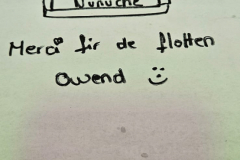 Merci fir de flotten
Owend :)